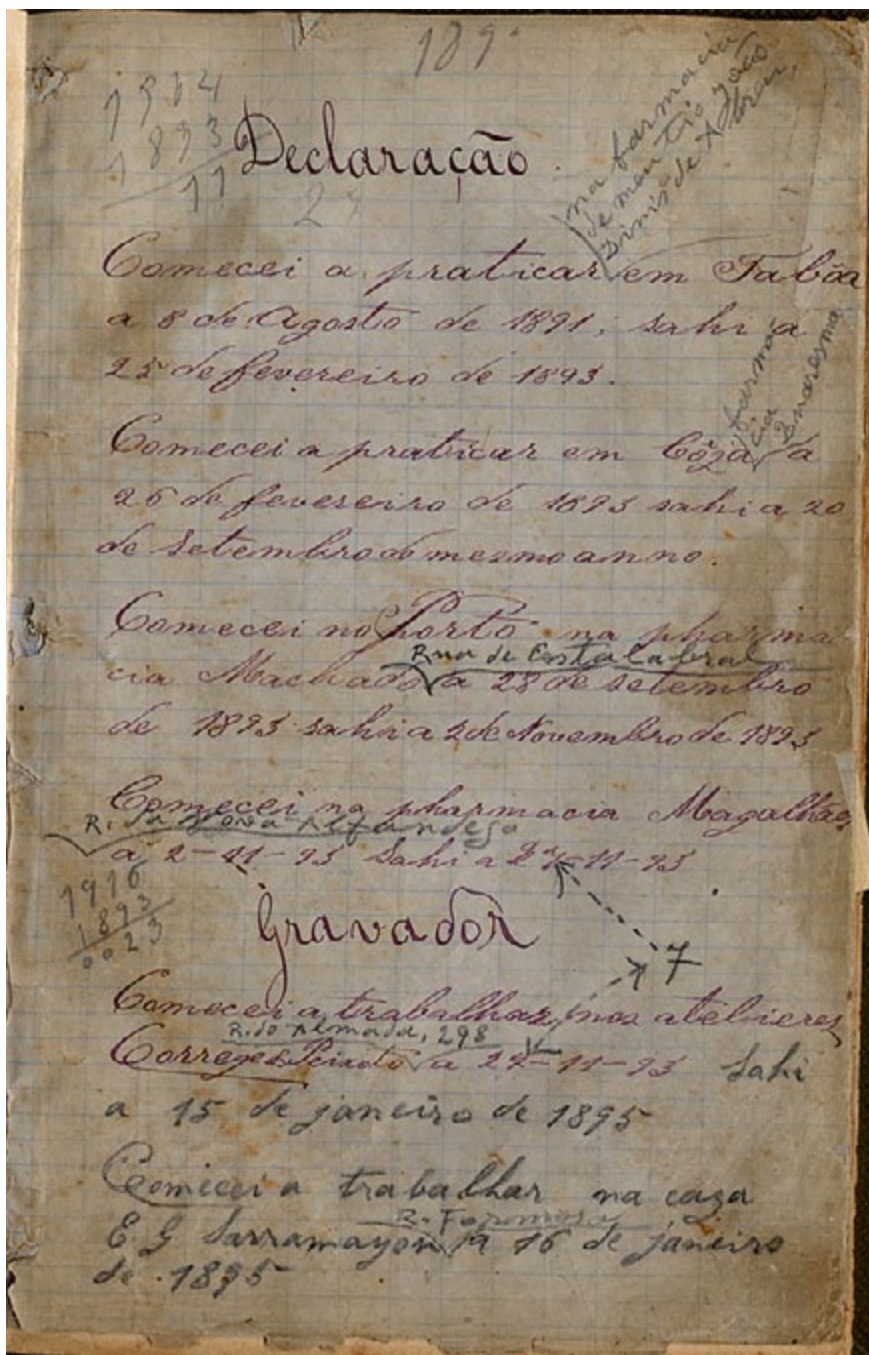 189
1934
1893
11
2
Declaração.
na farmacia
de meu tio João
Dinis de Abreu,
Comecei a praticar em Tabôa
a 8 de Agosto de 1891; sahi a
25 de fevereiro de 1893.
farma
cia
Quaresma
Comecei a praticar em Côja a
26 de fevereiro de 1893 sahi a 20
de Setembro do mesmo anno.
Comecei no Porto na pharma
Rua de
cia Machado a 28 de setembro
de 1893 sahi a 2 de Novembro de 1893
Comecei na pharmacia Magalhães
R. da Nova Alfandega
a 2-11-93 Sahi a 27-11-93
1916
1893
0023
Gravador
7
Comecei a trabalhar, nos atelieres
R. do Almada, 298
Peixoto a 27-11-93 Sahi
a 15 de janeiro de 1895
Comecei a trabalhar na caza
R. Formosa
E. G. a 16 de janeiro
de 1895